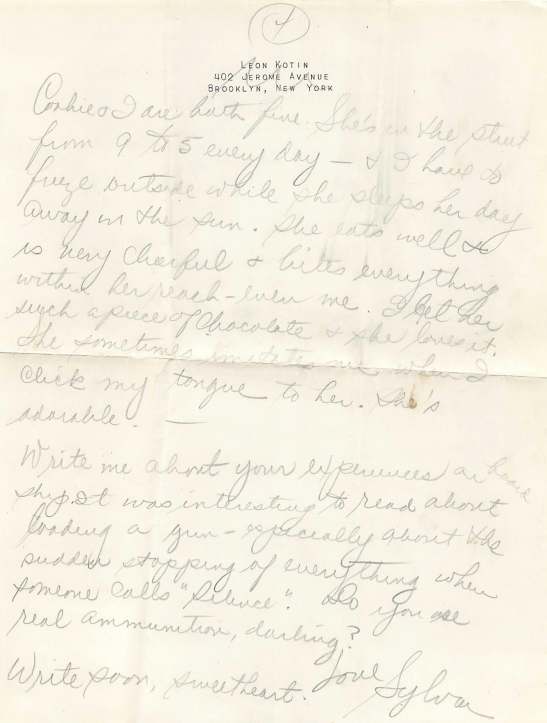 4
LEON KOTIN
402 JEROME AVENUE
BROOKLYN, NEW YORK
Cookie & I are both fine. She's in the street
from 9 to 5 every day — & I have to
freeze outside while she sleeps her day
away in the sun. She eats well &
is very cheerful & bites everything
within her reach - even me. I let her
suck a piece of chocolate & she loves it.
She sometimes imitates me when I
click my tongue to her. She's
adorable. —
Write me about your experiences on board
ship. It was interesting to read about
loading a gun - especially about the
sudden stopping of everything when
someone calls "Silence". Do you use
real ammunition, darling?
Write soon, sweetheart. Love Sylvia